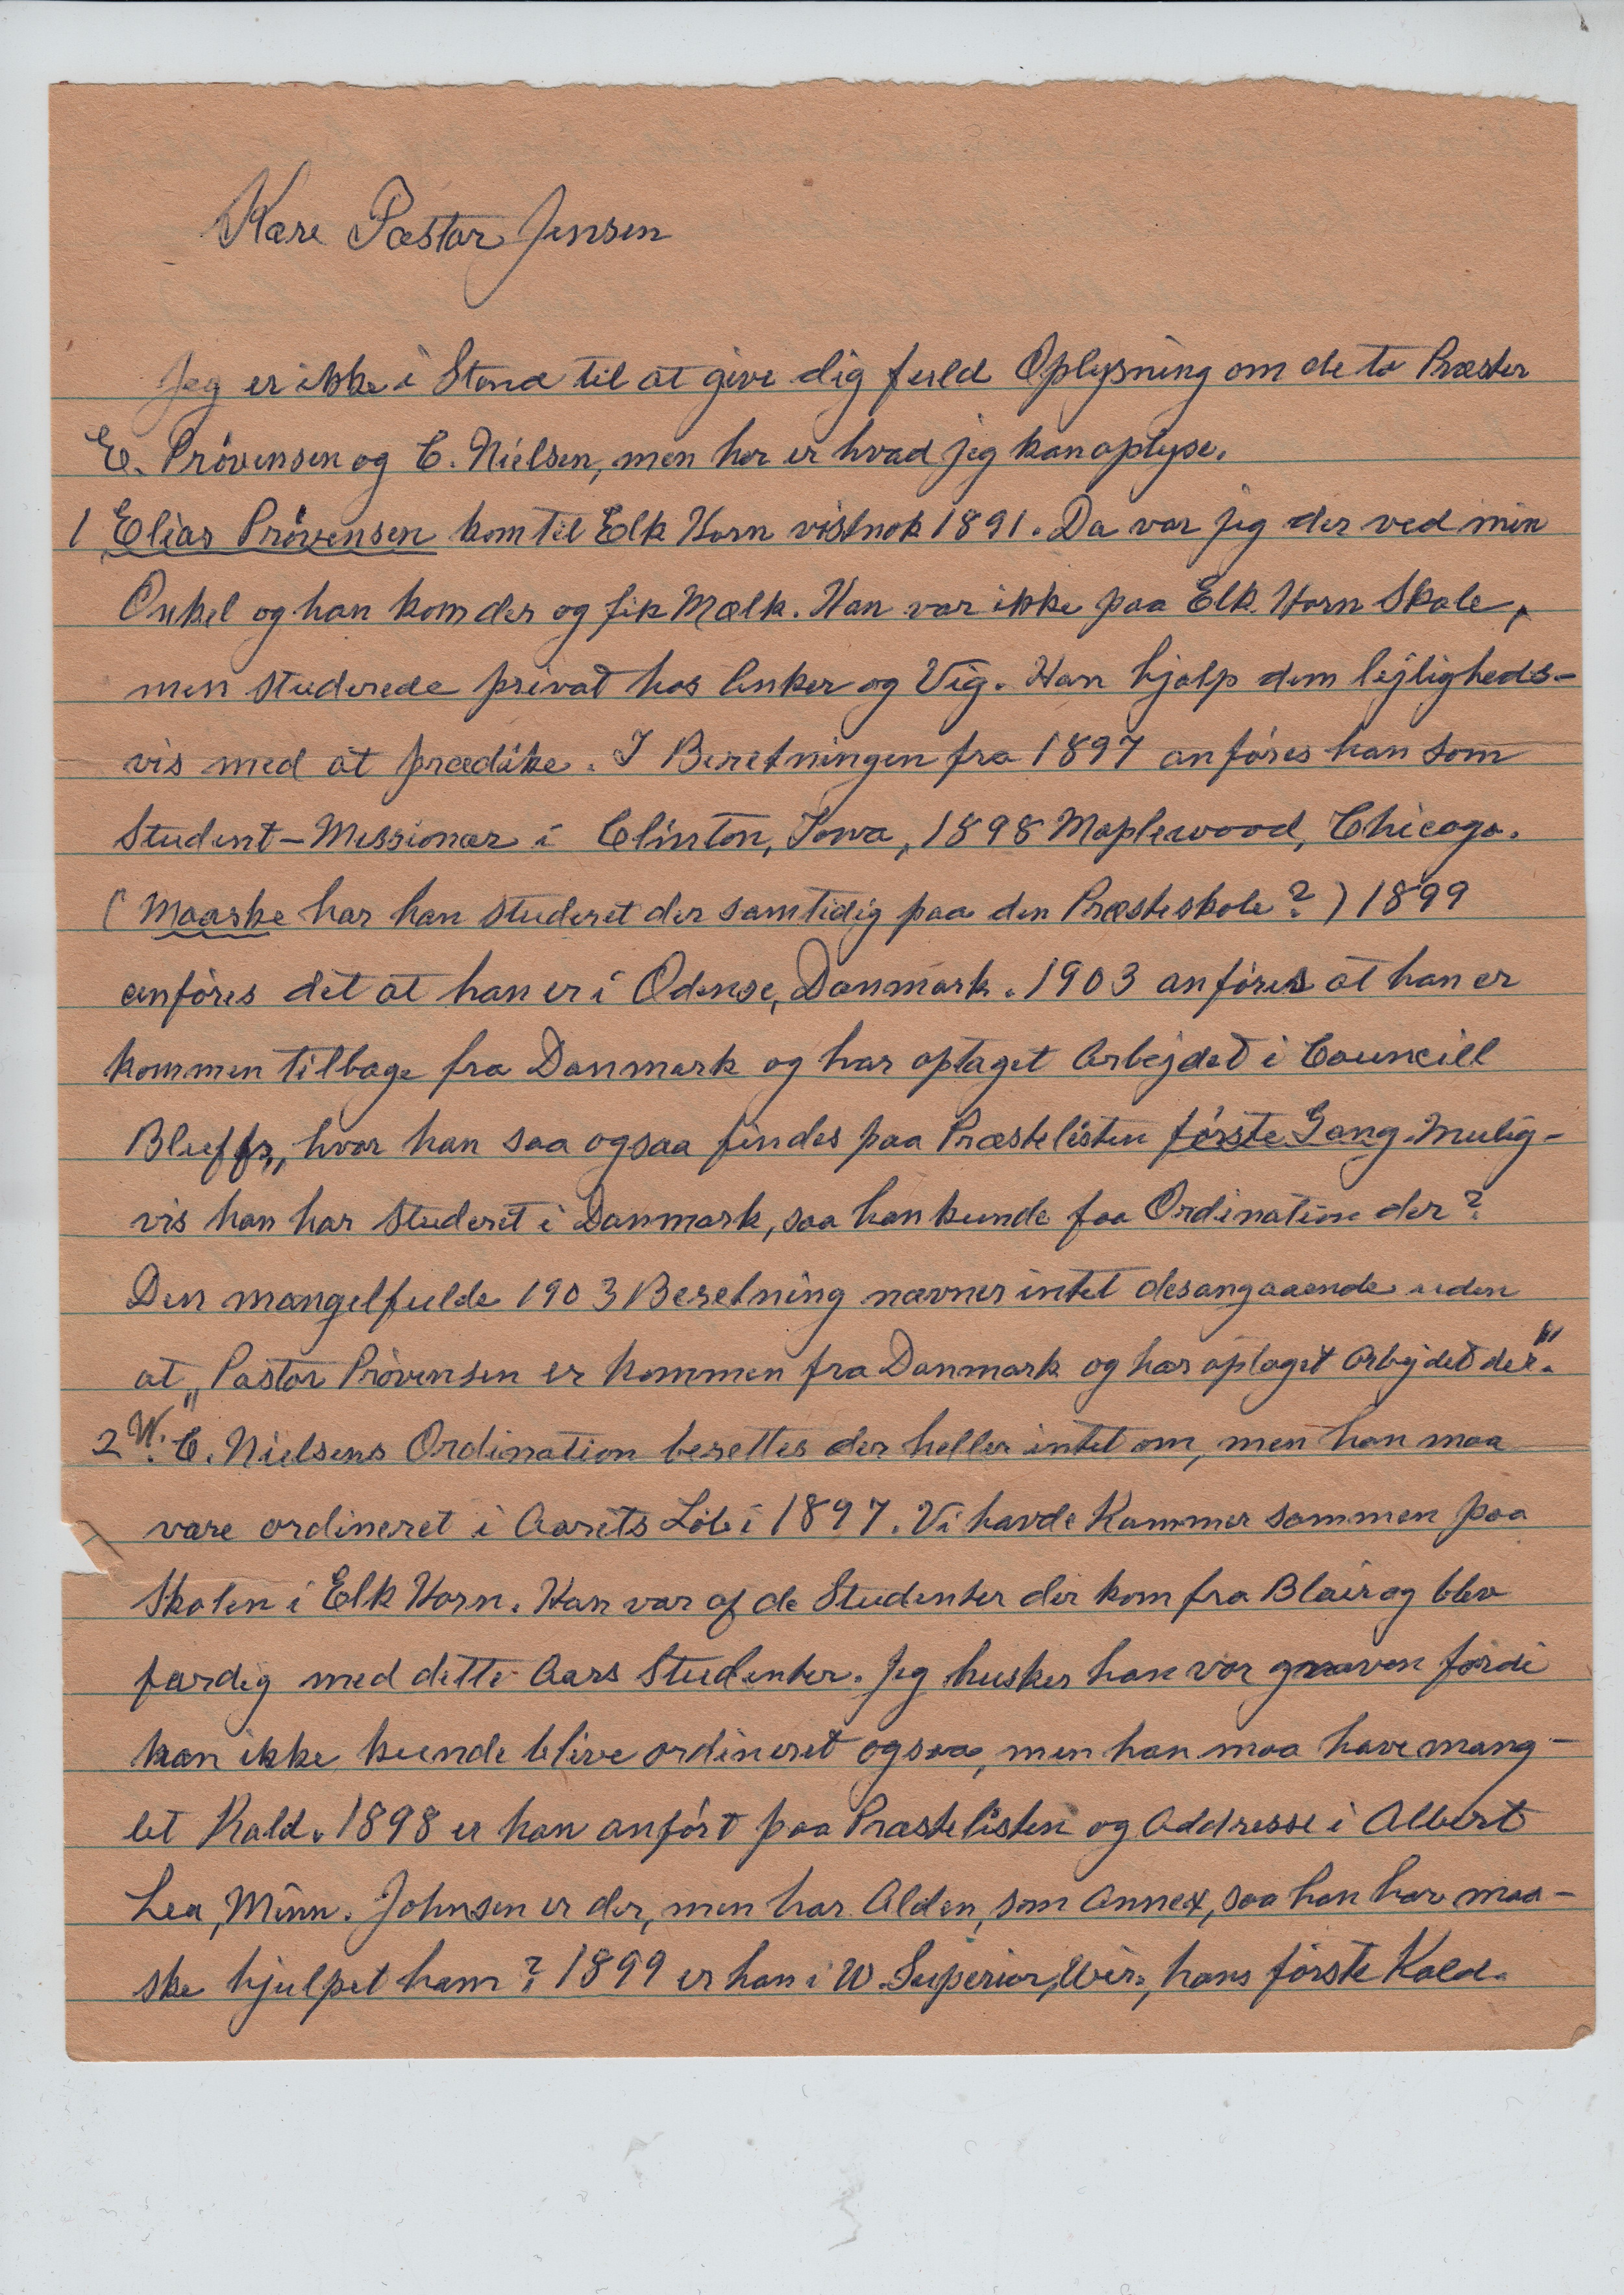 Kære Pastor Jensen
Jeg er ikke i Stand til at give dig fuld Oplysning om de to Præster
E. Prövensen og C. Nielsen, men her er hvad jeg kan oplyse.
1 Elias Prövensen kom til Elk Horn vistnok 1891. Da var jeg der ved min
Onkel og han kom der og fik Mælk. Han var ikke paa Elk Horn Skole,
men studerede privat hos Anker og Vig. Han hjalp dem lejligheds-
vis med at prædike. I Beretningen fra 1897 anföres han som
Student-Missionær i Clinton, Iowa, 1898 Maplewood, Chicago.
(Maaske har han studeret der samtidig paa den Præsteskole?) 1899
anföres det at han er i Odense, Danmark. 1903 anföres at han er
kommen tilbage fra Danmark og har optaget Arbejdet i Councill
Bluffs, hvor han saa ogsaa findes paa Præstelisten förste Gang. Mulig-
vis han har studeret i Danmark, saa han kunde faa Ordination der?
Den mangelfulde 1903 Beretning nævner intet desangaaende uden
at „Pastor Prövensen er kommen fra Danmark og har optaget Arbejdet der".
2 W. C. Nielsens Ordination berettes der heller intet om, men han maa
være ordineret i Aarets Löb i 1897. Vi havde Kammer sammen paa
Skolen i Elk Horn. Han var af de Studenter der kom fra Blair og blev
færdig med dette Aars Studenter. Jeg husker han var gnaven fordi
han ikke kunde blive ordineret ogsaa, men han maa have mang-
let Kald. 1898 er han anfört paa Præstelisten og Addresse i Albert
Lea, Minn. Johnsen er der, men har Alden, som Annex, saa han har maa-
ske hjulpet ham? 1899 er han i W. Superior, Wis., hans förste Kald.